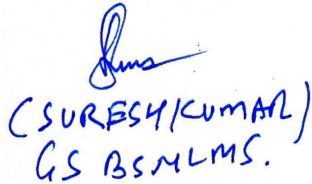 (SURESH KUMAR)
GS BSNLMS.